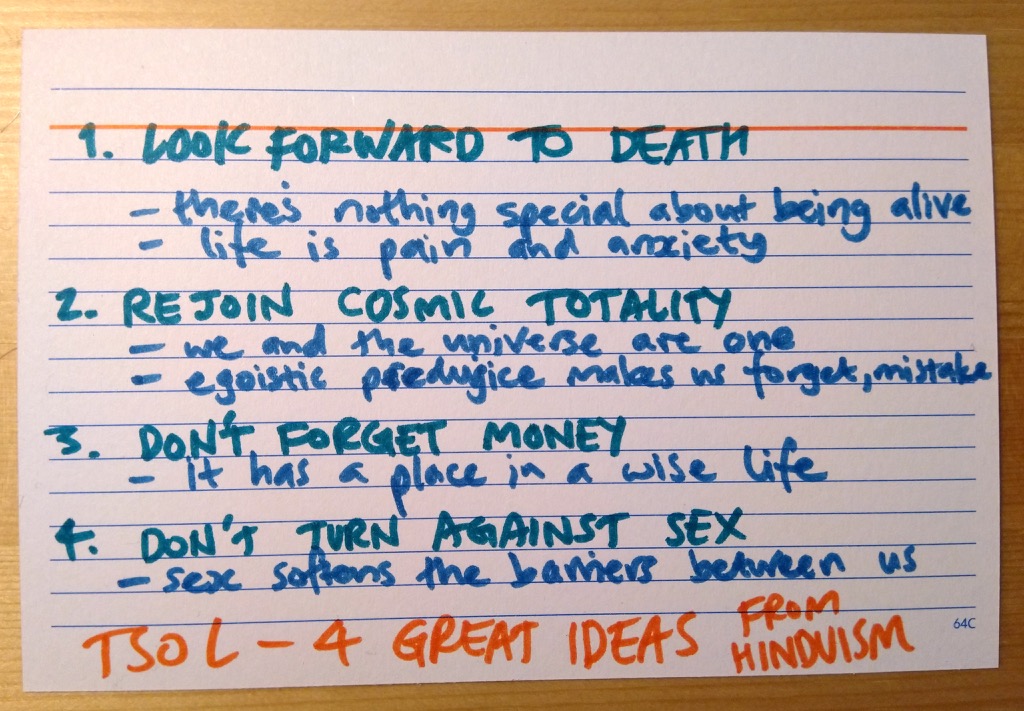 1. LOOK FORWARD TO DEATH
- there's nothing special about being alive
- life is pain and anxiety
2. REJOIN COSMIC TOTALITY
- we and the universe are one
- egoistic predugice makes us forget, mistake
3. DON'T FORGET MONEY
- it has a place in a wise life
4. DON'T TURN AGAINST SEX
- sex softens the barriers between us
64C
TSOL - 4 GREAT IDEAS FROM HINDUISM